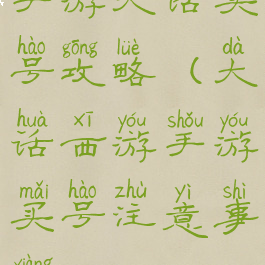 手游大话买
hào gōng lüè dà
号攻略（大
huà xī yóu shǒu yóu
话西游手游
mǎi hào zhù yì shì
买号注意事
xiàng